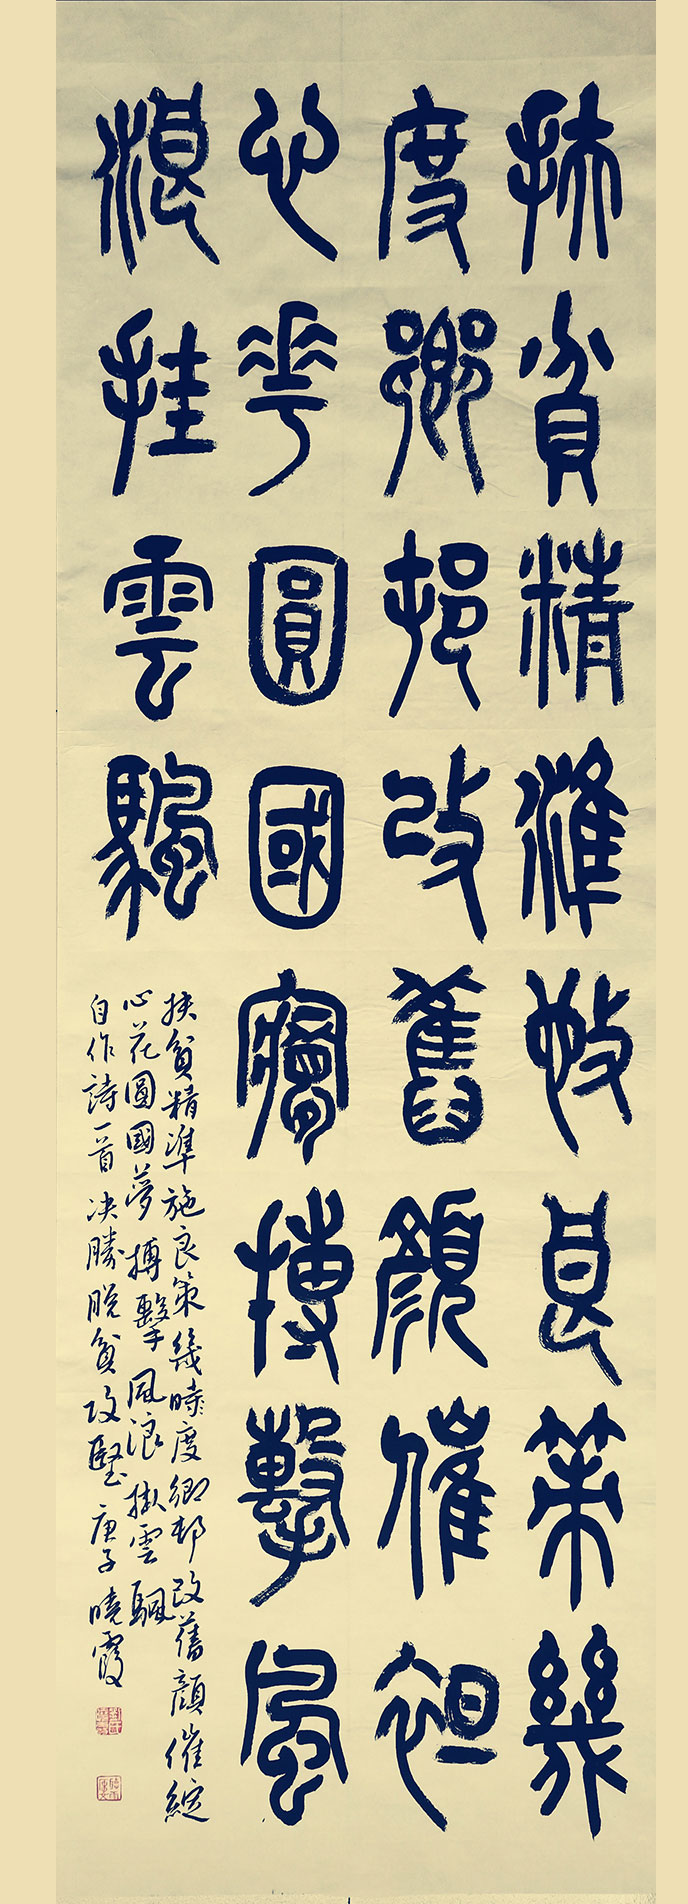 扶貧精準施良策幾
度鄉邨改舊顏催袒
心花圓國夢搏擊風
浪挂雲颿
扶貧精準施良策幾時度鄉邨改舊顏催綻
心花圓國夢搏擊風浪掛雲颿
自作詩一首决勝脫貧攻堅庚子曉霞